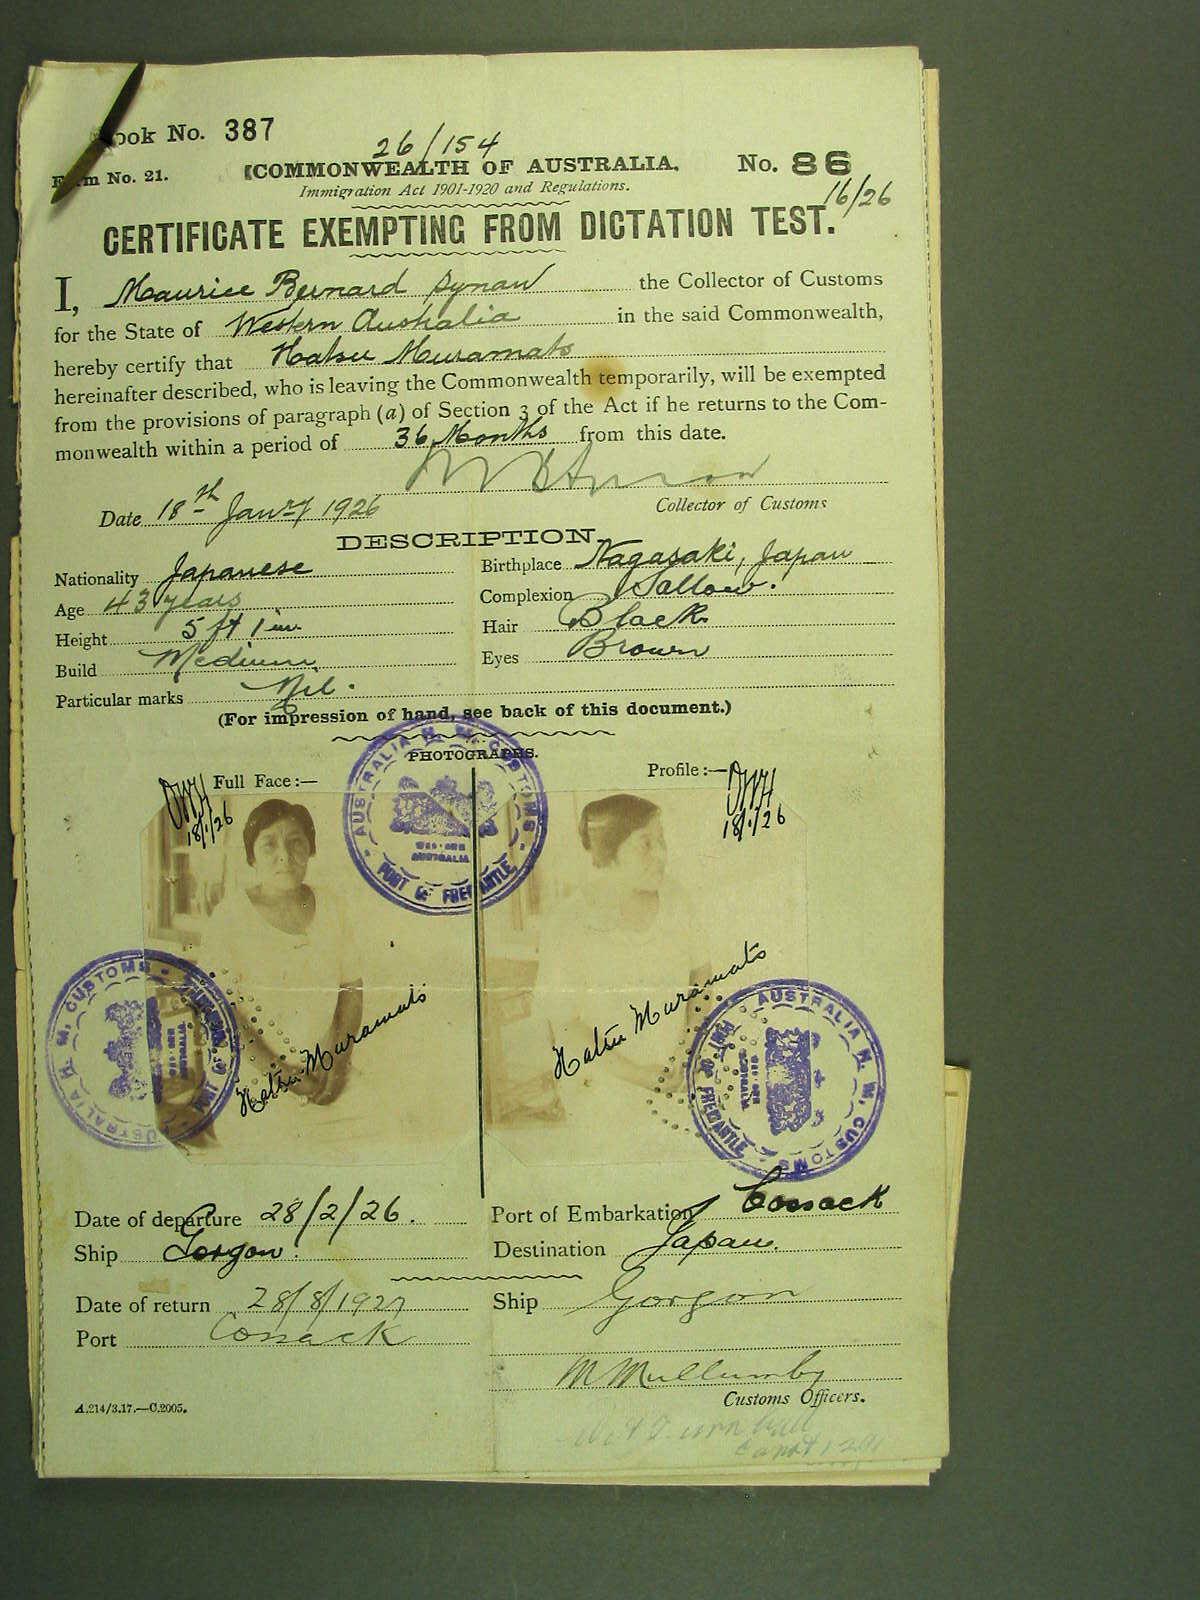 ook No. 387
26/154
Form No. 21.
COMMONWEALTH OF AUSTRALIA.
No. 86
Immigration Act 1901-1920 and Regulations.
16/26
CERTIFICATE EXEMPTING FROM DICTATION TEST.
I, Maurice Bernard Synan the Collector of Customs
for the State of Western Australia in the said Commonwealth,
hereby certify that Hatsu Muramats
hereinafter described, who is leaving the Commonwealth temporarily, will be exempted
from the provisions of paragraph (a) of Section 3 of the Act if he returns to the Com-
monwealth within a period of 36 Months from this date.
Date 18th Janry 1926
Collector of Customs
DESCRIPTION.
Nationality Japanese
Birthplace Nagasaki, Japan
Age 43 years
Complexion Sallow.
Height 5 ft 1 in.
Hair Black
Build Medium
Eyes Brown
Particular marks Nil.
(For impression of hand, see back of this document.)
PHOTOGRAPHS.
Full Face:—
Profile:—
18/1/26
18/1/26
AUSTRALIA H. M. CUSTOMS
WESTERN AUSTRALIA
PORT OF FREMANTLE
Hatsu Muramats
Hatsu Muramats
AUSTRALIA H. M. CUSTOMS
PORT OF
AUSTRALIA H. M. CUSTOMS
PORT OF FREMANTLE
Date of departure 28/2/26.
Port of Embarkation Cossack
Ship Gorgon.
Destination Japan.
Date of return 28/8/1927
Ship Gorgon
Port Cossack
M Mullumby
Customs Officers.
A.214/3.17.—C.2005.